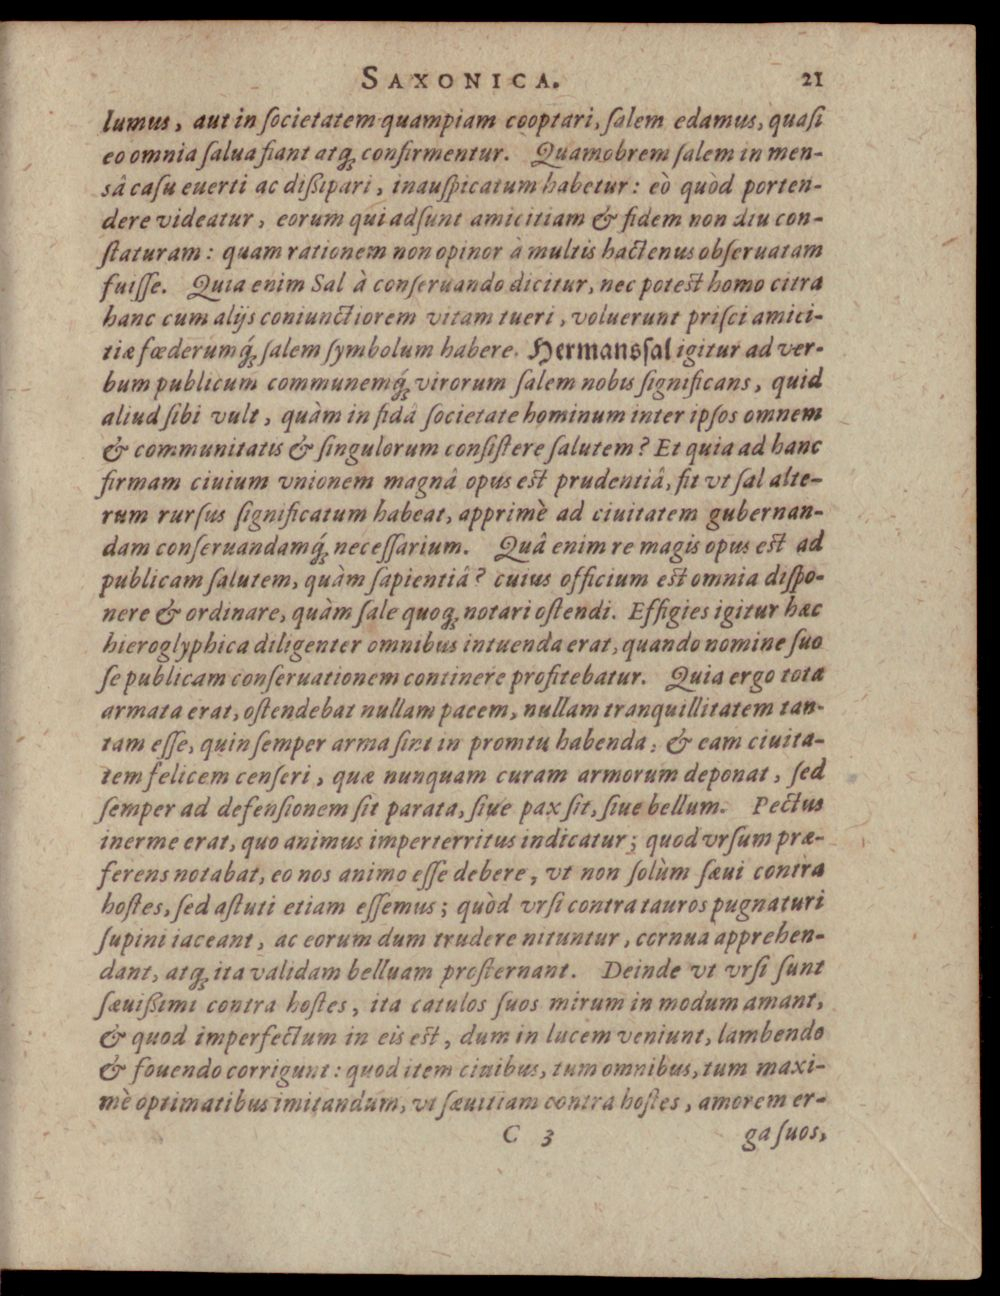 SAXONICA. 21
lumus, aut in ſocietatem quampiam cooptari, ſalem edamus, quaſi
eo omnia ſalua fiant atq́; confirmentur. Quamobrem ſalem in men-
sâ caſu euerti ac diſsipari, inauſpicatum habetur: eò quòd porten-
dere videatur, eorum qui adſunt amicitiam & fidem non diu con-
ſtaturam: quam rationem non opinor à multis hactenus obſeruatam
fuiſſe. Quia enim Sal à conſeruando dicitur, nec poteſt homo citra
hanc cum alijs coniunctiorem vitam tueri, voluerunt priſci amici-
tiæ fœderumq́; ſalem ſymbolum habere. Hermansſal igitur ad ver-
bum publicum communemq́; virorum ſalem nobis ſignificans, quid
aliud ſibi vult, quàm in fidâ ſocietate hominum inter ipſos omnem
& communitatis & ſingulorum conſiſtere ſalutem? Et quia ad hanc
firmam ciuium vnionem magnâ opus eſt prudentiâ, fit vt ſal alte-
rum rurſus ſignificatum habeat, apprimè ad ciuitatem gubernan-
dam conſeruandamq́; neceſſarium. Quâ enim re magis opus eſt ad
publicam ſalutem, quàm ſapientiâ? cuius officium eſt omnia diſpo-
nere & ordinare, quàm ſale quoq; notari oſtendi. Effigies igitur hæc
hieroglyphica diligenter omnibus intuenda erat, quando nomine ſuo
ſe publicam conſeruationem continere profitebatur. Quia ergo tota
armata erat, oſtendebat nullam pacem, nullam tranquillitatem tan-
tam eſſe, quin ſemper arma ſint in promtu habenda; & eam ciuita-
tem felicem cenſeri, quæ nunquam curam armorum deponat, ſed
ſemper ad defenſionem ſit parata, ſiue pax ſit, ſiue bellum. Pectus
inerme erat, quo animus imperterritus indicatur; quod vrſum præ-
ferens notabat, eo nos animo eſſe debere, vt non ſolùm ſæui contra
hoſtes, ſed aſtuti etiam eſſemus; quòd vrſi contra tauros pugnaturi
ſupini iaceant, ac eorum dum trudere nituntur, cornua apprehen-
dant, atq; ita validam belluam proſternant. Deinde vt vrſi ſunt
ſæuiſsimi contra hoſtes, ita catulos ſuos mirum in modum amant,
& quod imperfectum in eis eſt, dum in lucem veniunt, lambendo
& fouendo corrigunt: quod item ciuibus, tum omnibus, tum maxi-
mè optimatibus imitandum, vt ſæuitiam contra hoſtes, amorem er-
C 3 ga ſuos,